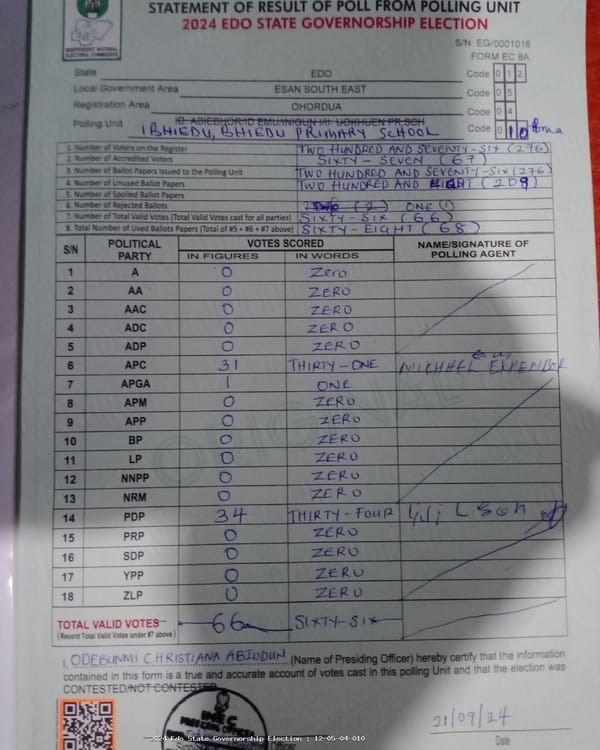 STATEMENT OF RESULT OF POLL FROM POLLING UNIT
2024 EDO STATE GOVERNORSHIP ELECTION
INEC
INDEPENDENT NATIONAL ELECTORAL COMMISSION
S/N: EG/0001016
FORM EC 8A
State EDO Code 0 1 2
Local Government Area ESAN SOUTH EAST Code 0 5
Registration Area OHORDUA Code 0 4
Polling Unit
IBHIEDU, BHIEDU PRIMARY SCHOOL Code 0 1 0
1. Number of Voters on the Register TWO HUNDRED AND SEVENTY-SIX (276)
2. Number of Accredited Voters SIXTY-SEVEN (67)
3. Number of Ballot Papers Issued to the Polling Unit TWO HUNDRED AND SEVENTY-SIX (276)
4. Number of Unused Ballot Papers TWO HUNDRED AND (209)
5. Number of Spoiled Ballot Papers
6. Number of Rejected Ballots TWO (2) ONE (1)
7. Number of Total Valid Votes (Total Valid Votes cast for all parties) SIXTY-SIX (66)
8. Total Number of Used Ballots Papers (Total of #5 + #6 + #7 above) SIXTY-EIGHT (68)
S/N POLITICAL PARTY VOTES SCORED NAME/SIGNATURE OF POLLING AGENT
IN FIGURES IN WORDS
1 A 0 Zero
2 AA 0 ZERO
3 AAC 0 ZERO
4 ADC 0 ZERO
5 ADP 0 ZERO
6 APC 31 THIRTY-ONE
7 APGA 1 ONE
8 APM 0 ZERO
9 APP 0 ZERO
10 BP 0 ZERO
11 LP 0 ZERO
12 NNPP 0 ZERO
13 NRM 0 ZERO
14 PDP 34 THIRTY-FOUR
15 PRP 0 ZERO
16 SDP 0 ZERO
17 YPP 0 ZERO
18 ZLP 0 ZERO
ORIGINAL
TOTAL VALID VOTES 66 SIXTY-SIX
(Record Total Valid Votes under #7 above)
I, ODEBUNMI CHRISTIANA ABIODUN (Name of Presiding Officer) hereby certify that the information
contained in this form is a true and accurate account of votes cast in this polling Unit and that the election was
CONTESTED/NOT CONTESTED
INEC
21/09/24
Date
2024 Edo State Governorship Election : 12-05-04-010